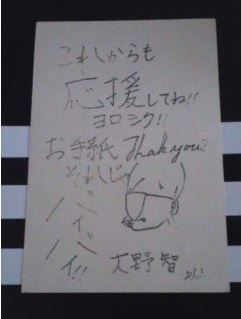 これからも
応援してね!!
ヨロシク!!
お手紙 Thak you!!
それじゃ
バイ
バイ!!
大野智